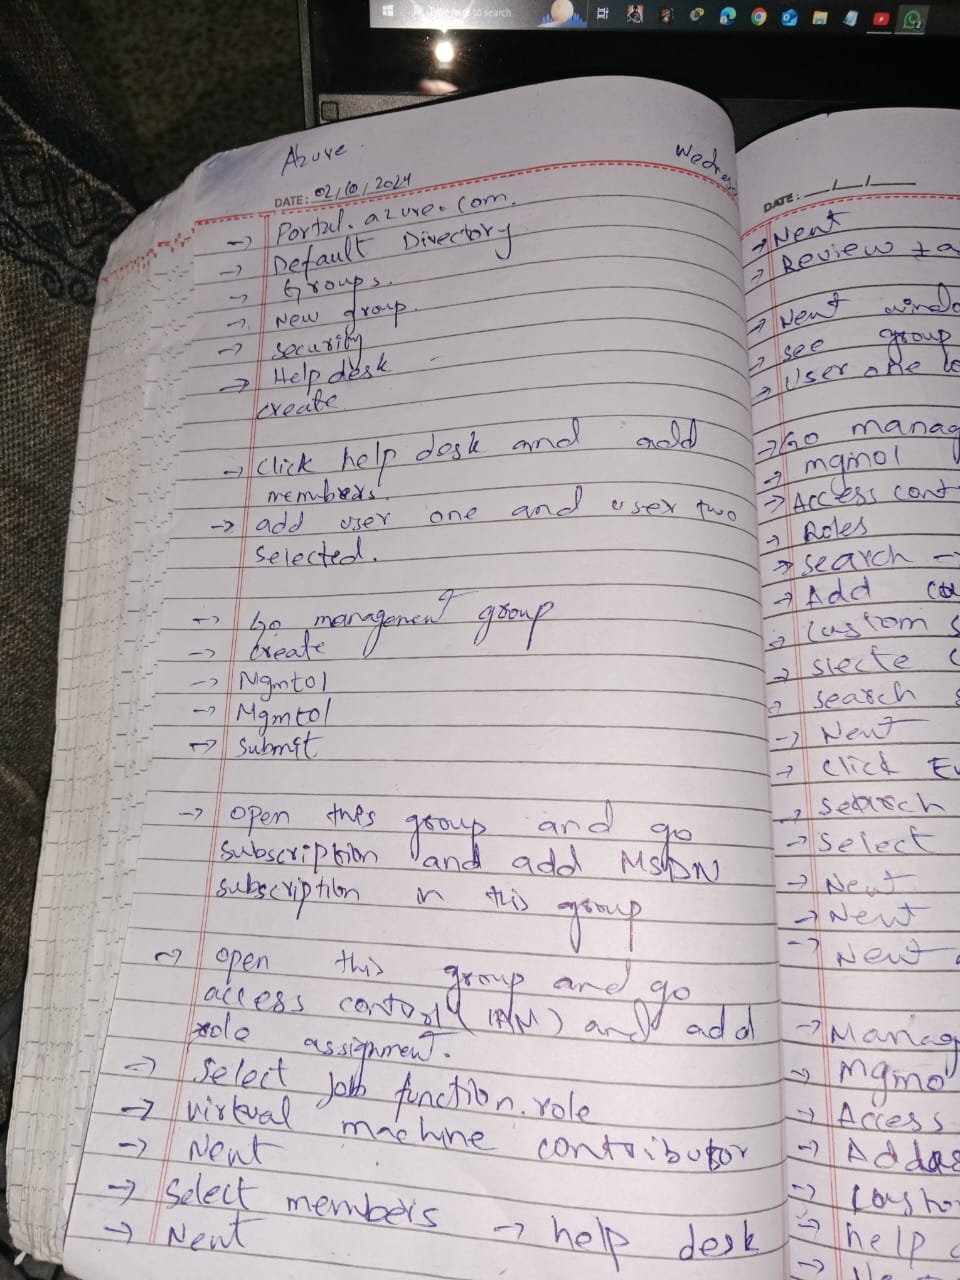 Type here to search
Azure
Wednes
DATE: 02/10/2024
→ Portal.azure.com.
→ Default Directory
→ Groups.
→ New group.
→ Security
→ Help desk
create
→ Click help desk and add
members.
→ add user one and user two
selected.
→ Go management group
→ Create
→ Mgmt01
→ Mgmt01
→ Submit
→ open this group and go
subscription and add MSDN
subscription in this group
→ open this group and go
access contorl (IAM) and add
role assignment.
→ Select Job function role
→ virtual machine contributor
→ Next
→ Select members → help desk
→ Next
DATE: __/__/__
→ Next
→ Review + a
→ Next windo
→ see group
→ User one
→ Go manag
→ mgmo1
→ Access cont
→ Roles
→ search →
→ Add
→ Custom s
→ slecte
→ search s
→ Next
→ click
→ search
→ Select
→ Next
→ Next
→ Next
→ Manag
→ mgmo
→ Access
→ Add
→
→ help